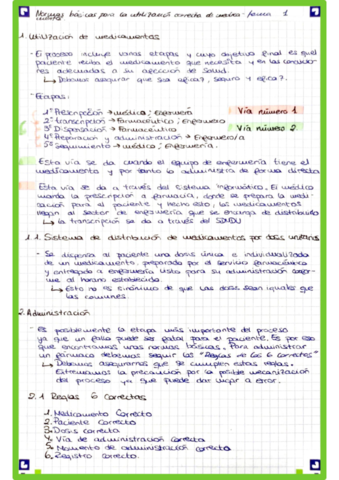 Normas básicas para la utilización correcta de - 1
1. Utilización de medicamentos
- El proceso incluye varias etapas y cuyo objetivo final es que el
paciente reciba el medicamento que necesita y en las condiciones
adecuadas a su afección de salud.
↳ Debemos asegurar que sea eficaz, seguro y eficaz.
- Etapas:
1º Prescripción → médico; Enfermera
2º transcripción → Farmacéutico; enfermero
3º Disposición → Farmacéutico
4º Preparación y administración → Enfermero/a
5º Seguimiento → médico; Enfermería.
Vía número 1
Vía número 2.
Esta vía se da cuando el equipo de enfermería tiene el
medicamento y por tanto la administra de forma directa
Esta vía se da a través del sistema informático. El médico
manda la prescripción a farmacia, donde se prepara la medicación
para el paciente y hecho esto, los medicamentos
llegan al sector de enfermería que se encarga de distribuirlo
↳ la transcripción se da a través del SDMDU
1.1. Sistema de distribución de medicamentos por dosis unitarias
- Se dispensa al paciente una dosis única e individualizada
de un medicamento, preparada por el servicio farmacéutico
y entregada a enfermería lista para su administración conforme
al horario establecido.
↳ Esto no es sinónimo de que las dosis sean iguales que
las comunes
2. Administración
- Es posiblemente la etapa más importante del proceso
ya que un fallo puede ser fatal para el paciente. Es por ello
que encontramos unas normas básicas. Para administrar
un fármaco debemos seguir las "Reglas de los 6 correctos"
↳ Debemos asegurarnos que se cumplen estas reglas.
Extremamos la precaución por la posible mecanización
del proceso ya que puede dar lugar a error.
2.1 Reglas 6 correctas
1. Medicamento Correcto
2. Paciente correcto
3. Dosis correcta
4. Vía de administración correcta
5. Momento de administración correcto
6. Registro correcto.